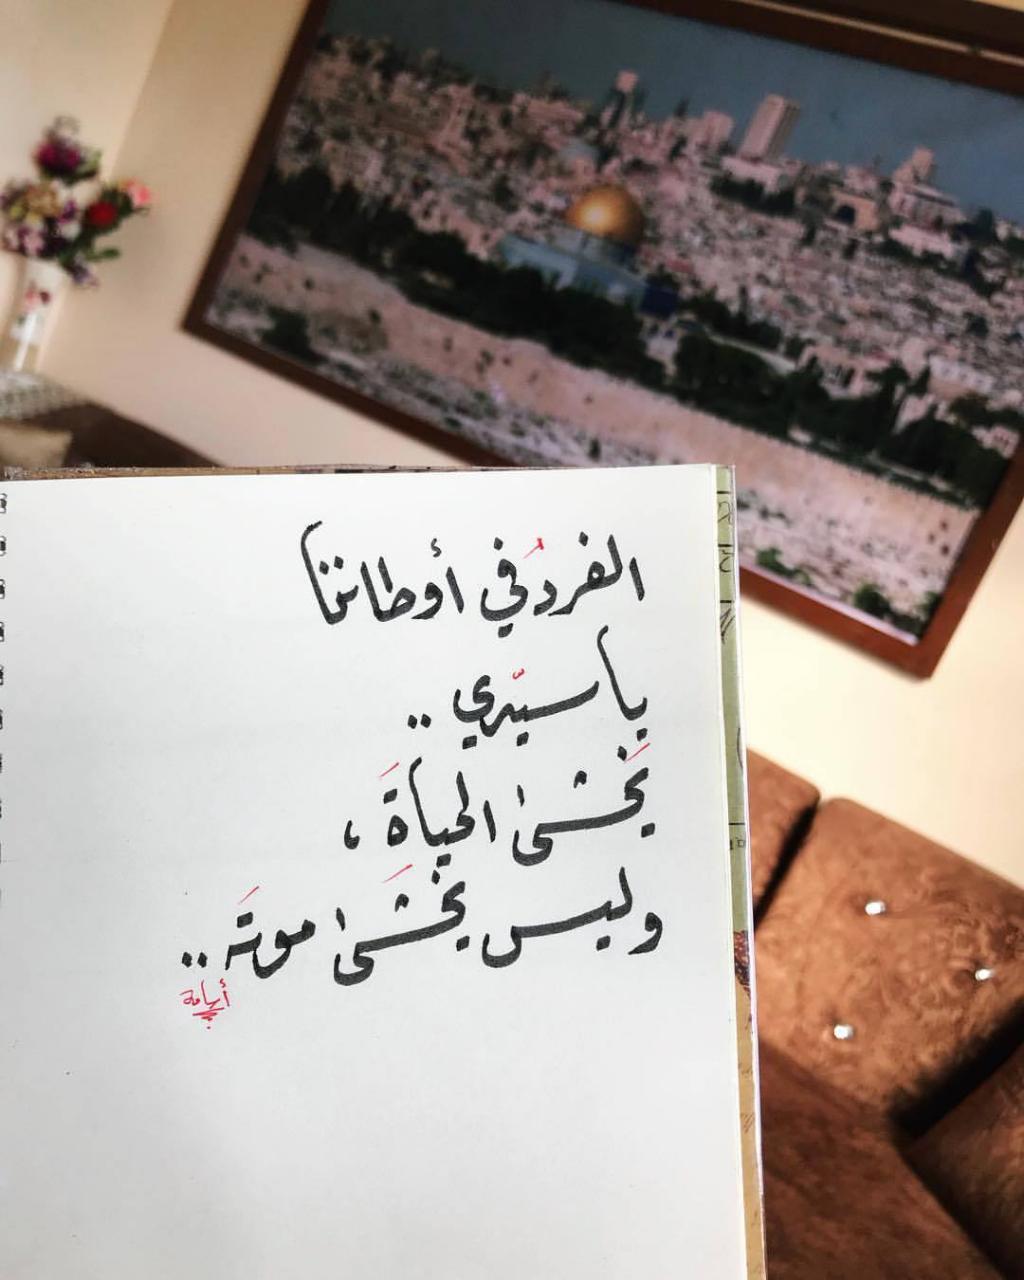 الفردُ في أوطاننا
يا سيّدي ..
يَخشى الحياةَ ،
وليس يَخشى موتَه ..
أسامة